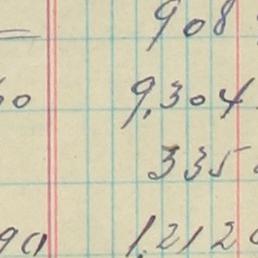 908
50 9,304
335
90 1,212